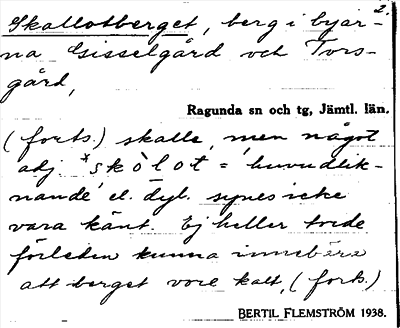 2.
Skallotberget, berg i byar-
na Gisselgård och Tors-
gård,
Ragunda sn och tg, Jämtl. län.
(forts.) skalle, men något
adj. *skōlot = 'huvudlik-
nande' el. dyl. synes icke
vara känt. Ej heller torde
förleden kunna innebära
att berget vore kalt, (forts.)
BERTIL FLEMSTRÖM 1938.